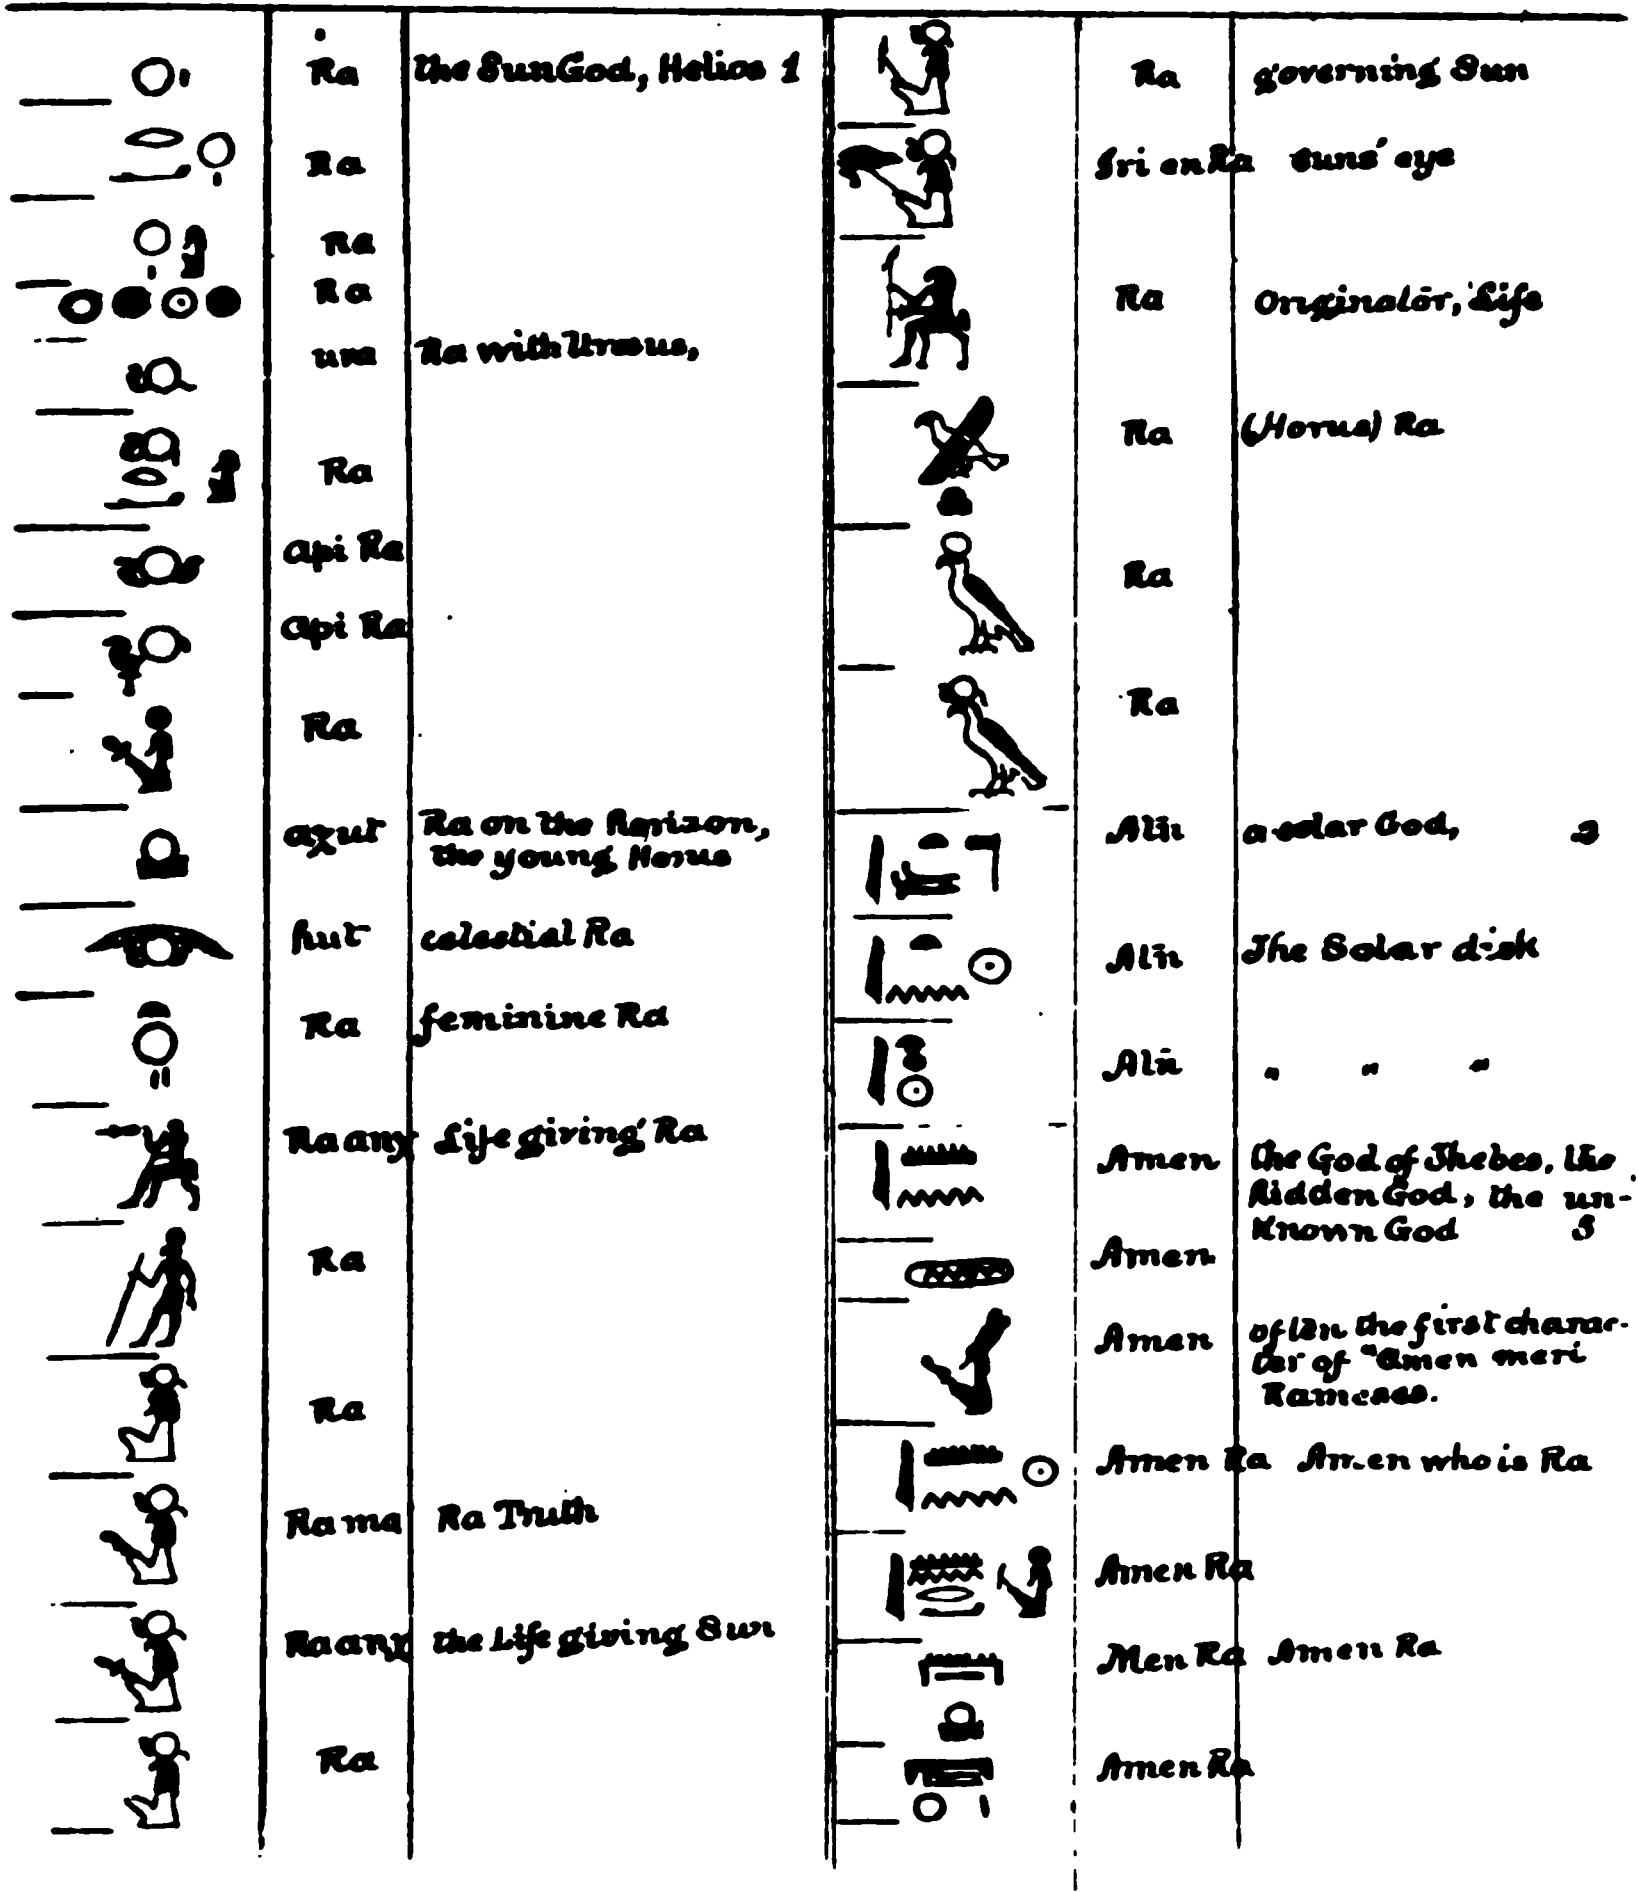 Ra the Sun God, Helios 1
Ra
Ra
Ra
ura Ra with Uraeus,
Ra
api Ra
api Ra
Ra
aχut Ra on the horizon,
the young Horus
hut celestial Ra
Ra feminine Ra
Ra anχ Life giving Ra
Ra
Ra
Ra ma Ra Truth
Ra anχ the Life giving Sun
Ra
Ra governing Sun
Iri en Ra suns' eye
Ra Originator, Life
Ra (Horus) Ra
Ra
Ra
Atn a solar God, 2
Atn The Solar disk
Atn " " "
Amen the God of Thebes, the
hidden God, the un-
known God 3
Amen
Amen often the first charac-
ter of "Amen meri
Rameses.
Amen Ra Amen who is Ra
Amen Ra
Men Ra Amen Ra
Amen Ra